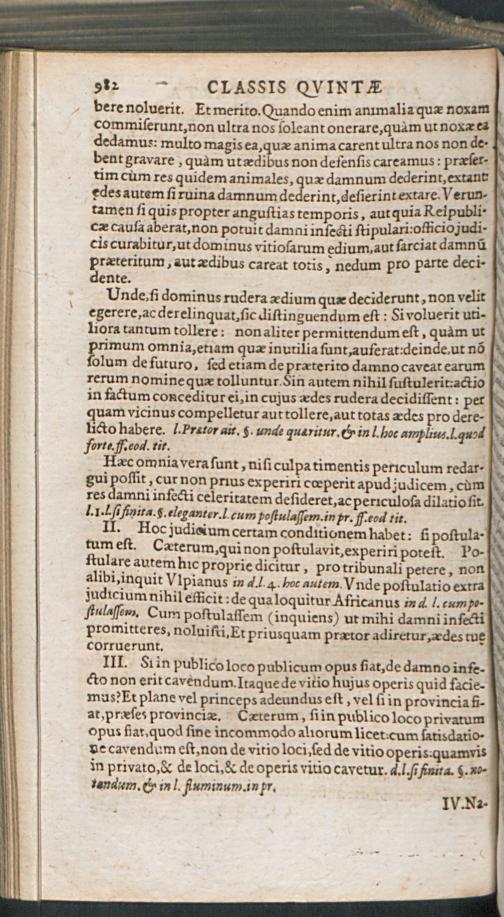 982 CLASSIS QVINTÆ
bere noluerit. Et merito. Quando enim animalia quæ noxam
commiserunt, non ultra nos soleant onerare, quàm ut noxæ ea
dedamus: multo magis ea, quæ anima carent ultra nos non de-
bent gravare, quàm ut ædibus non defensis careamus: præser-
tim cùm res quidem animales, quæ damnum dederint, extant:
ędes autem si ruina damnum dederint, desierint extare. Verun-
tamen si quis propter angustias temporis, aut quia Reipubli-
cæ causa aberat, non potuit damni infecti stipulari: officio judi-
cis curabitur, ut dominus vitiosarum ędium, aut sarciat damnū
præteritum, aut ædibus careat totis, nedum pro parte deci-
dente.
Unde, si dominus rudera ædium quæ deciderunt, non velit
egerere, ac derelinquat, sic distinguendum est: Si voluerit uti-
liora tantum tollere: non aliter permittendum est, quàm ut
primum omnia, etiam quæ inutilia sunt, auferat: deinde. ut nō
solum de futuro, sed etiam de præterito damno caveat earum
rerum nomine quæ tolluntur. Sin autem nihil sustulerit: actio
in factum conceditur ei, in cujus ædes rudera decidissent: per
quam vicinus compelletur aut tollere, aut totas ædes pro dere-
licto habere. l. Prætor ait. §. unde quæritur. & in l. hoc amplius. l. quod
forte. ff. eod. tit.
Hæc omnia vera sunt, nisi culpa timentis periculum redar-
gui possit, cur non prius experiri cœperit apud judicem, cùm
res damni infecti celeritatem desideret, ac periculosa dilatio sit.
l. 1. l. si finita. §. eleganter. l. cum postulassem. in pr. ff. eod tit.
II. Hoc judicium certam conditionem habet: si postula-
tum est. Cæterum, qui non postulavit, experiri potest. Po-
stulare autem hic proprie dicitur, pro tribunali petere, non
alibi, inquit Vlpianus in d. l. 4. hoc autem. Vnde postulatio extra
judicium nihil efficit: de qua loquitur Africanus in d. l. cum po-
stulassem. Cum postulassem (inquiens) ut mihi damni infecti
promitteres, noluisti, Et priusquam prætor adiretur, ædes tuę
corruerunt.
III. Si in publico loco publicum opus fiat, de damno infe-
cto non erit cavendum. Itaque de vitio hujus operis quid facie-
mus? Et plane vel princeps adeundus est, vel si in provincia fi-
at, præses provinciæ. Cæterum, si in publico loco privatum
opus fiat, quod sine incommodo aliorum licet: cum satisdatio-
ne cavendum est, non de vitio loci, sed de vitio operis: quamvis
in privato, & de loci, & de operis vitio cavetur. d. l. si finita. §. no-
tandum. & in l. fluminum. in pr.
IV. Na-